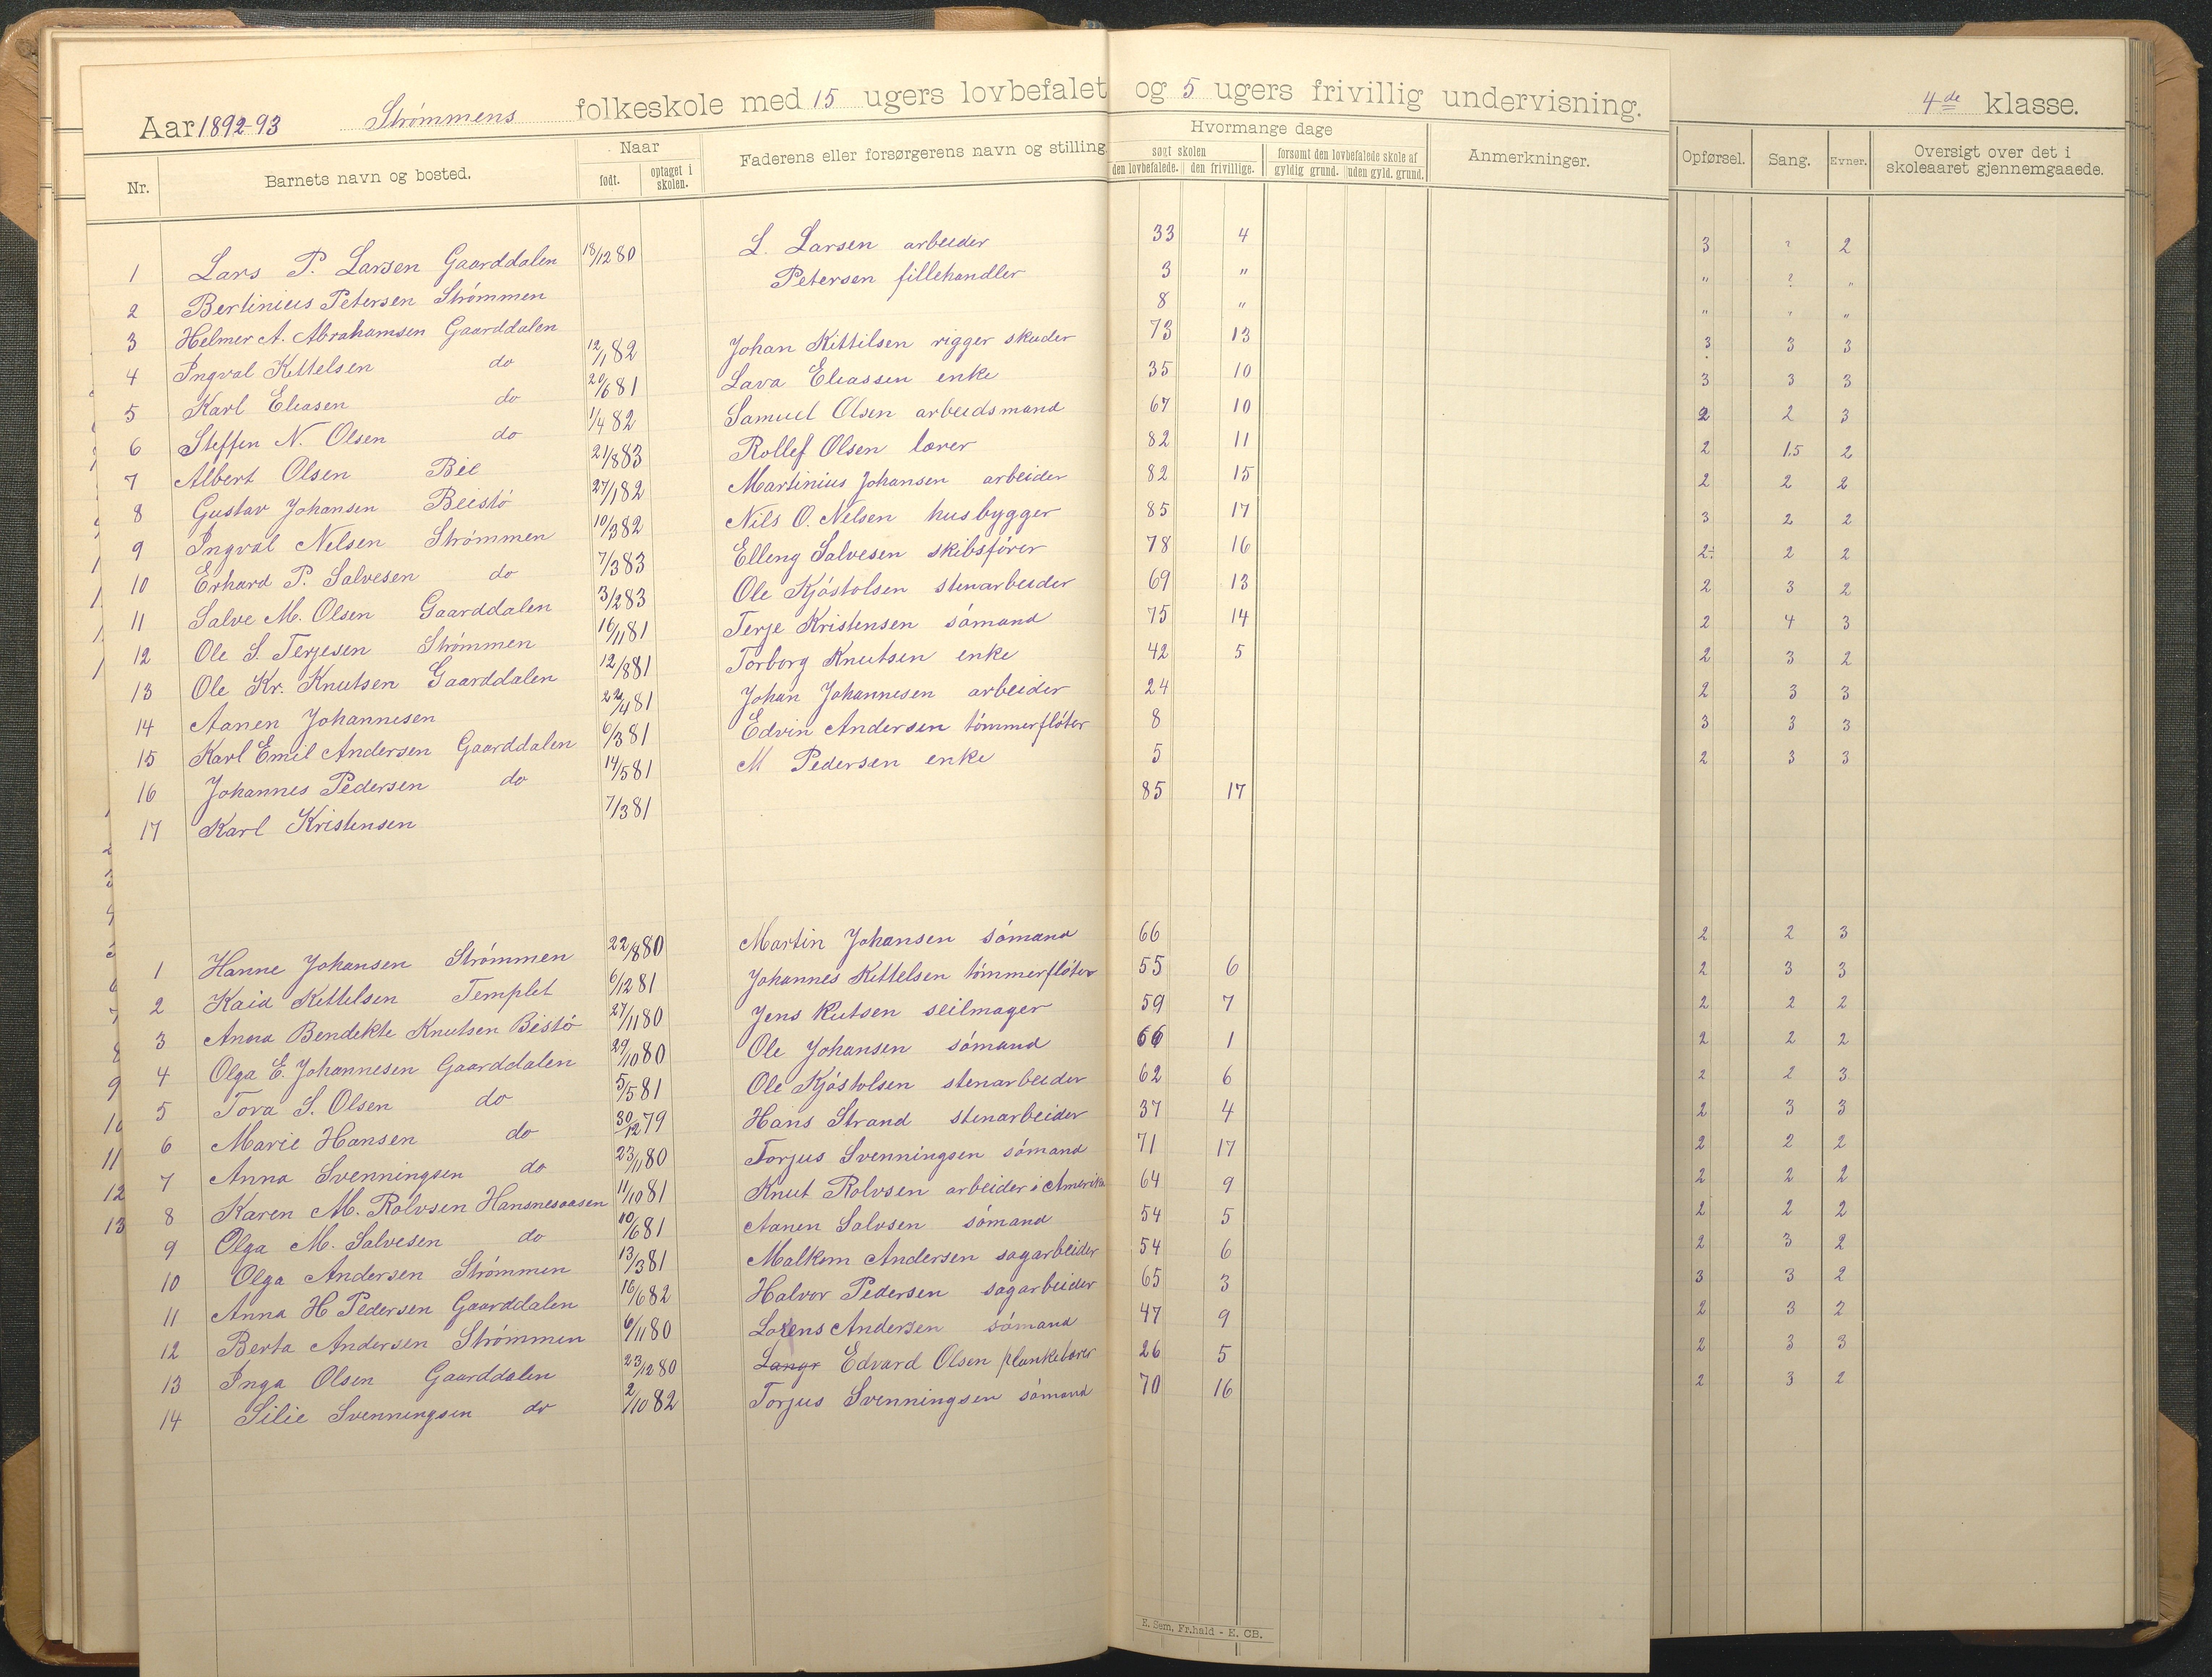 Aar 1892-93 Strømmens folkeskole med 15 ugers lovbefalet og 5 ugers frivillig undervisning. 4de klasse.
Nr. Barnets navn og bosted. Naar født. optaget i skolen. Faderens eller forsørgerens navn og stilling. Hvormange dage søgt skolen den lovbefalede. den frivillige. forsømt den lovbefalede skole af gyldig grund. uden gyld. grund. Anmerkninger. Opførsel. Sang. Evner. Oversigt over det i skoleaaret gjennemgaaede.
1 Lars P. Larsen Gaarddalen 18/12 80 L. Larsen arbeider 33 4 3 ? 2
2 Bertinius Petersen Strømmen Petersen fillehandler 3 " " ? "
3 Helmer A. Abrahamsen Gaarddalen 8 " " "
4 Ingval Kittelsen do 12/1 82 Johan Kittilsen rigger skuder 73 13 3 3 3
5 Karl Eleasen do 20/6 81 Lava Eleassen enke 35 10 3 3 3
6 Steffen N. Olsen do 1/4 82 Samuel Olsen arbeidsmand 67 10 2 2 3
7 Albert Olsen Bie 21/8 83 Rollef Olsen lærer 82 11 2 1.5 2
8 Gustav Johansen Beistø 27/1 82 Martinius Johansen arbeider 82 15 2 2 2
9 Ingval Nelsen Strømmen 10/3 82 Nils O. Nelsen husbygger 85 17 3 2 2
10 Erhard P. Salvesen do 7/3 83 Elleng Salvesen skibsfører 78 16 2÷ 2 2
11 Salve M. Olsen Gaarddalen 3/2 83 Ole Kjøstolsen stenarbeider 69 13 2 3 2
12 Ole S. Terjesen Strømmen 16/11 81 Terje Kristensen sømand 75 14 2 4 3
13 Ole Kr. Knutsen Gaarddalen 12/8 81 Torborg Knutsen enke 42 5 2 3 2
14 Aanen Johannesen 22/4 81 Johan Johannesen arbeider 24 2 3 3
15 Karl Emil Andersen Gaarddalen 6/3 81 Edvin Andersen tømmerfløter 8 3 3 3
16 Johannes Pedersen do 14/5 81 M Pedersen enke 5 2 3 3
17 Karl Kristensen 7/3 81 85 17
1 Hanne Johansen Strømmen 22/8 80 Martin Johansen sømand 66 2 2 3
2 Kaia Kittelsen Templet 6/12 81 Johannes Kittelsen tømmerfløter 55 6 2 3 3
3 Anna Bendekte Knutsen Bistø 27/11 80 Jens Kutsen seilmager 59 7 2 2 2
4 Olga E. Johannesen Gaarddalen 29/10 80 Ole Johansen sømand 66 1 2 2 2
5 Tora S. Olsen do 5/5 81 Ole Kjøstolsen stenarbeider 62 6 2 2 3
6 Marie Hansen do 30/12 79 Hans Strand stenarbeider 37 4 2 3 3
7 Anna Svenningsen do 23/11 80 Torjus Svenningsen sømand 71 17 2 2 2
8 Karen M. Rolvsen Hansnesaasen 11/10 81 Knut Rolvsen arbeider i Amerika 64 9 2 2 2
9 Olga M. Salvesen do 10/6 81 Aanen Salvsen sømand 54 5 2 2 2
10 Olga Andersen Strømmen 13/3 81 Malkom Andersen sagarbeider 54 6 2 3 2
11 Anna H Pedersen Gaarddalen 16/6 82 Halvor Pedersen sagarbeider 65 3 3 3 2
12 Berta Andersen Strømmen 6/11 80 Lorens Andersen sømand 47 9 2 3 2
13 Inga Olsen Gaarddalen 23/12 80 Langr Edvard Olsen plankebærer 26 5 2 3 3
14 Silie Svenningsen do 2/10 82 Torjus Svenningsen sømand 70 16 2 3 2
E. Sem, Fr.hald - E. CB.